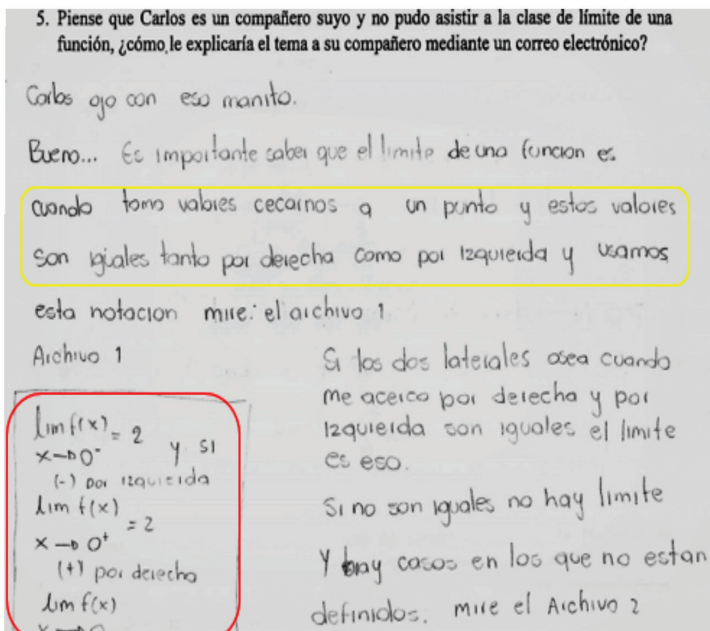 5. Piense que Carlos es un compañero suyo y no pudo asistir a la clase de límite de una
función, ¿cómo le explicaría el tema a su compañero mediante un correo electrónico?
Carlos ojo con eso manito.
Bueno... Es importante saber que el limite de una funcion es
cuando tomo valores cecarnos a un punto y estos valores
son iguales tanto por derecha como por izquierda y usamos
esta notacion mire: el archivo 1
Archivo 1
lim f(x) = 2 y si
x→0⁻
(-) por izquierda
lim f(x) = 2
x→0⁺
(+) por derecha
lim f(x)
x→0
Si los dos laterales osea cuando
me acerco por derecha y por
izquierda son iguales el limite
es eso.
Si no son iguales no hay limite
Y hay casos en los que no estan
definidos. mire el Archivo 2